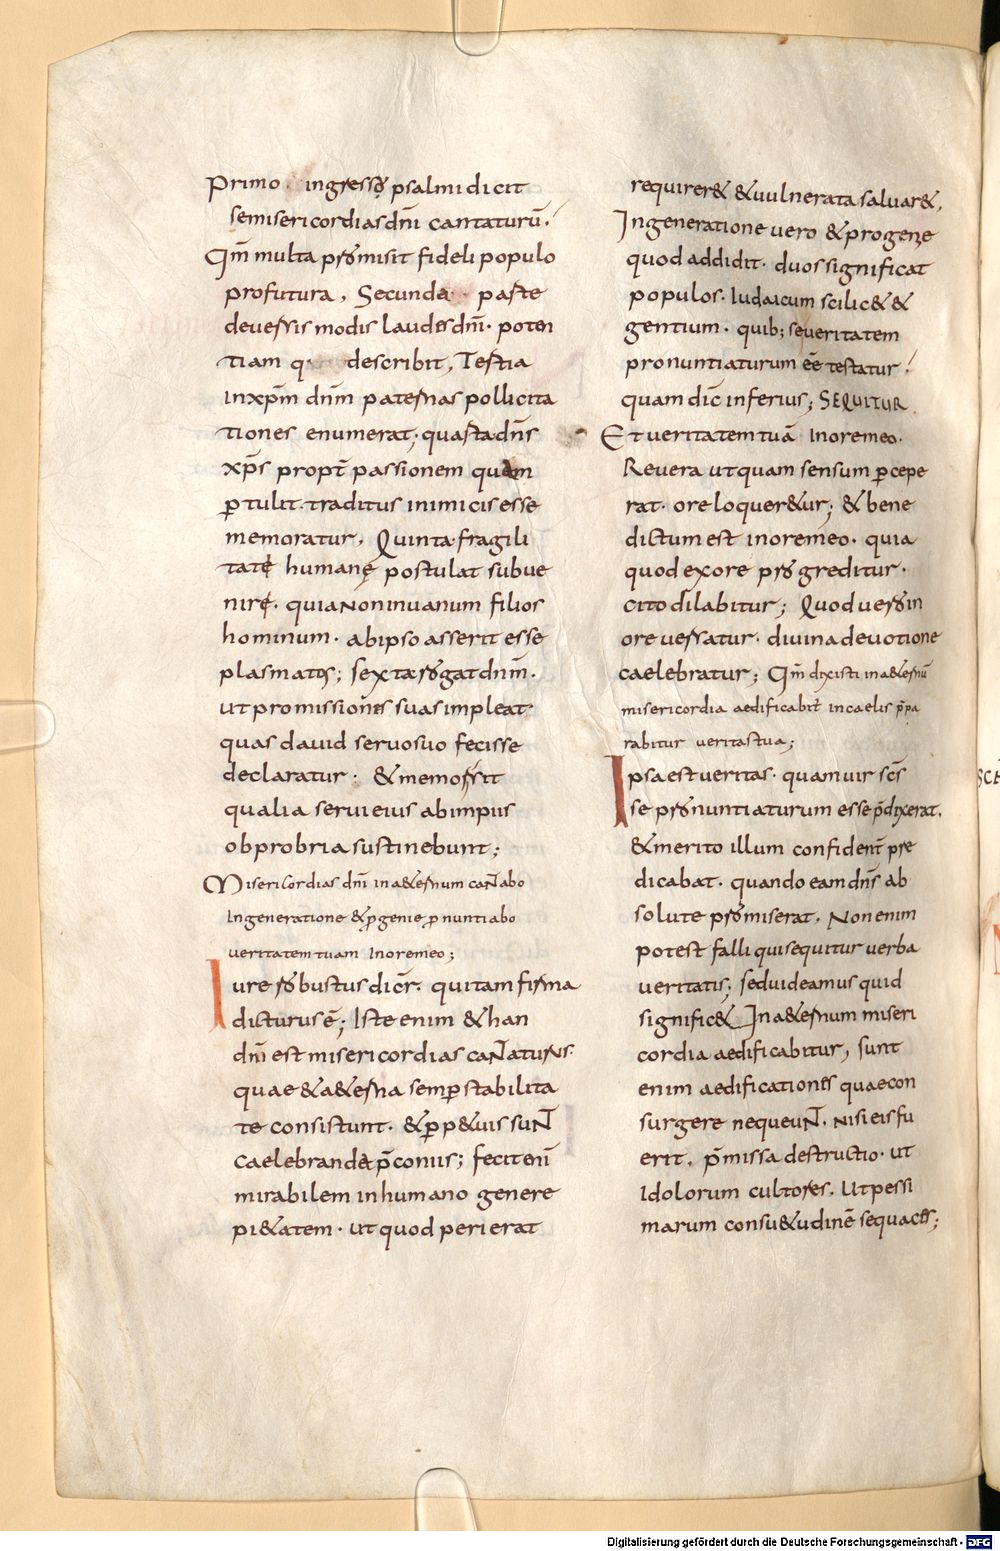 Primo ingresso psalmi dicit
semisericordias dn̄i cantaturū.
Qm̄ multa promisit fideli populo
profutura, Secunda parte
deuersis modis laudes dn̄i. poten
tiam q describit, Tertia
inxp̄m dn̄m paternas pollicita
tiones enumerat; quarta dn̄s
xp̄s propt̄ passionem quam
ꝑtulit. traditus inimicis esse
memoratur, Quinta fragili
tatę humanę postulat subue
nirę. quia non inuanum filios
hominum. ab ipso asserit esse
plasmatos; sexta rogat dn̄m.
ut promissiones suas impleat.
quas dauid seruo suo fecisse
declaratur. & memor sit
qualia serui eius ab impiis
obprobria sustinebunt;
Misericordias dn̄i in a&ernum cantabo
In generatione & ꝓgenie ꝓnuntiabo
ueritatem tuam In ore meo;
Iure robustus dicr̄. qui tam firma
dicturus ē; Iste enim & han
dn̄i est misericordias cantaturus.
quae & a&erna semꝑ stabilita
te consistunt. & ꝑp&uis sunt
caelebranda p̄coniis; fecit eni
mirabilem in humano genere
pi&atem. ut quod perierat
requirer& & uulnerata saluar&,
In generatione uero & progenie
quod addidit. duos significat
populos. Iudaicum scilic& &
gentium. quib; seueritatem
pronuntiaturum eē testatur!
quam dic̄ inferius; SEQUITUR
Et ueritatem tuā In ore meo.
Reuera ut quam sensum ꝑcepe
rat. ore loquer&ur; & bene
dictum est in ore meo. quia
quod ex ore progreditur.
cito dilabitur; Quod uero in
ore uersatur. diuina deuotione
caelebratur; Qm̄ dixisti in a&ernū
misericordia aedificabit̄ in caelis p̄pa
rabitur ueritas tua;
Ipsa est ueritas. quam uir sc̄s
se pronuntiaturum esse p̄dixerat.
& merito illum confident̄ prę
dicabat. quando eam dn̄s ab
solute promiserat. Non enim
potest falli qui sequitur uerba
ueritatis; sed uideamus quid
signific& In a&ernum miseri
cordia aedificabitur, sunt
enim aedificationes quae con
surgere nequeunt, nisi eis fu
erit, p̄missa destructio. ut
Idolorum cultores. Ut pessi
marum consu&udinē sequaces;
Digitalisierung gefördert durch die Deutsche Forschungsgemeinschaft - DFG